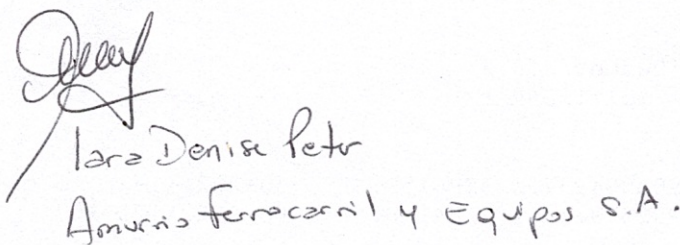 Iara Denise Peter
Amurrio Ferrocarril y Equipos S.A.